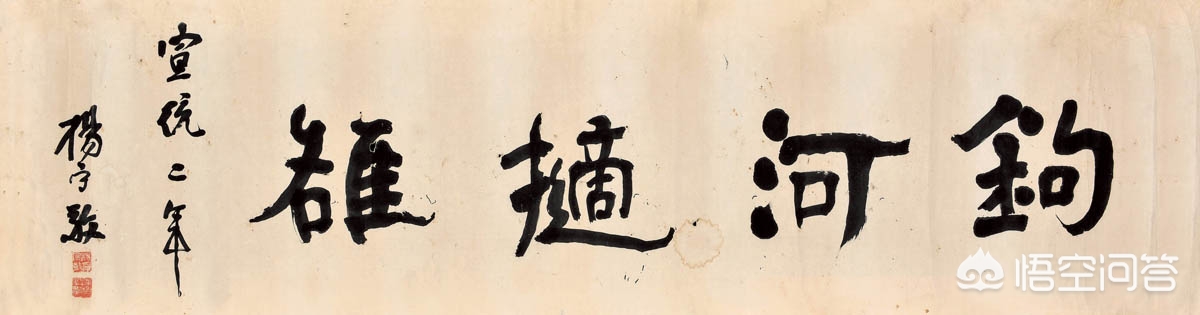 鉤河擿雒
宣統二年
楊守敬
悟空问答